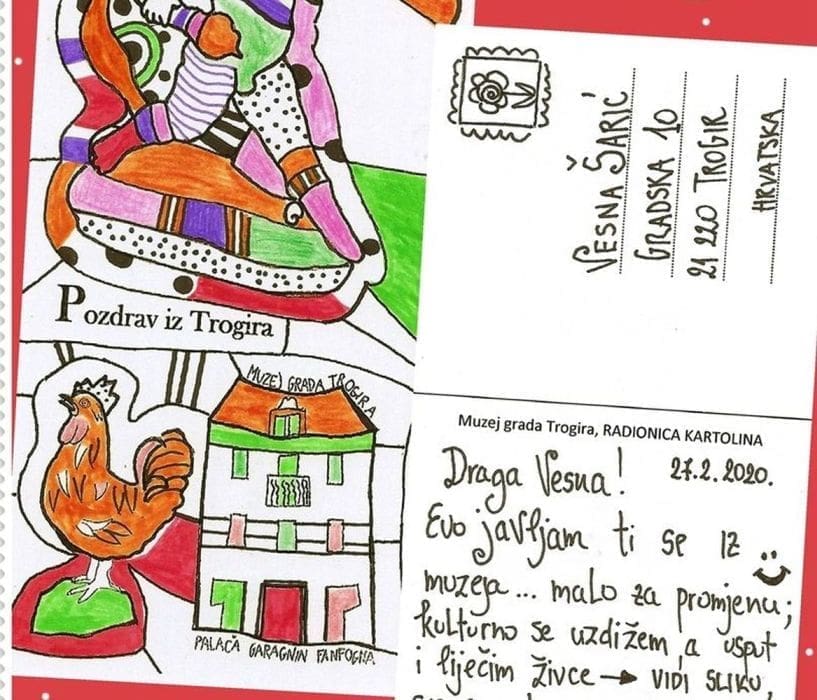 Pozdrav iz Trogira
MUZEJ GRADA TROGIRA
PALAČA GARAGNIN FANFOGNA
VESNA ŠARIĆ
GRADSKA 10
21 220 TROGIR
HRVATSKA
Muzej grada Trogira, RADIONICA KARTOLINA
Draga Vesna! 27.2.2020.
Evo javljam ti se iz
muzeja... malo za promjenu;
kulturno se uzdižem, a usput
i liječim živce → VIDI SLIKU,